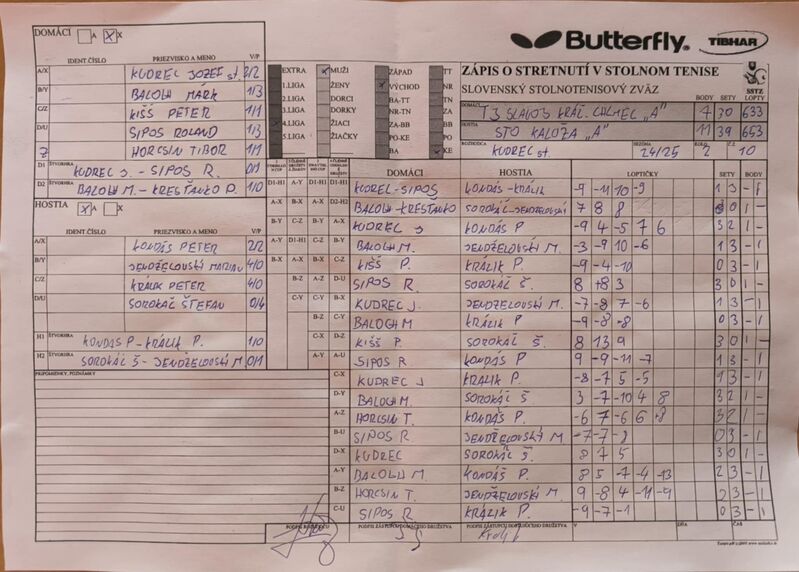 DOMÁCI A X
Butterfly® TIBHAR
IDENT.ČÍSLO PRIEZVISKO A MENO V/P
A/X KUDREC JOZEF st. 2/2
B/Y BALOGH MARK 1/3
C/Z KIŠŠ PETER 1/3
D/U SIPOS ROLAND 1/3
Z HORCSIN TIBOR 1/1
D1 ŠTVORHRA KUDREC J. - SIPOS R. 0/1
D2 ŠTVORHRA BALOGH M. - KRESŤANKO P. 1/0
HOSTIA A X
IDENT.ČÍSLO PRIEZVISKO A MENO V/P
A/X KONDÁS PETER 2/2
B/Y JENDŽELOVSKÝ MARIAN 4/0
C/Z KRÁLIK PETER 4/0
D/U SOROKÁČ ŠTEFAN 0/4
H1 ŠTVORHRA KONDÁS P - KRÁLIK P. 1/0
H2 ŠTVORHRA SOROKÁČ Š - JENDŽELOVSKÝ M. 0/1
PRIPOMIENKY, POZNÁMKY
EXTRA MUŽI ZÁPAD TT
1.LIGA ŽENY VÝCHOD NR
2.LIGA DORCI BA-TT TN
3.LIGA DORKY NR-TN ZA
4.LIGA ŽIACI ZA-BB BB
5.LIGA ŽIAČKY PO-KE PO
BA KE
ZÁPIS O STRETNUTÍ V STOLNOM TENISE
SLOVENSKÝ STOLNOTENISOVÝ ZVÄZ
SSTZ
BODY SETY LOPTY
DOMÁCI TJ SLAVOJ KRÁĽ. CHLMEC "A" 7 30 633
HOSTIA STO KALOŽA "A" 11 39 653
ROZHODCA KUDREC st SEZÓNA 24/25 KOLO 2 Č. 10
DOMÁCI HOSTIA LOPTIČKY SETY BODY
D1-H1 D1-H1 D1-H1 D1-H1 KUDREC-SIPOS KONDÁS-KRÁLIK -9 -11 10 -9 1 3 - 1
A-X B-X A-X D2-H2 BALOGH-KRESŤANKO SOROKÁČ-JENDŽELOVSKÝ 7 8 8 3 0 1 -
B-Y A-Y D1-H1 C-Z A-X KUDREC J KONDÁS P -9 4 -5 7 6 3 2 1 -
A-Y B-X B-Y BALOGH M. JENDŽELOVSKÝ M. -3 -9 10 -6 1 3 - 1
B-X A-X C-Z C-Z KIŠŠ P. KRÁLIK P. -9 -4 -10 0 3 - 1
B-Z A-Z D-U SIPOS R. SOROKÁČ Š 8 +8 3 3 0 1 -
C-Y C-Y B-X KUDREC J. JENDŽELOVSKÝ M. -7 -8 7 -6 1 3 - 1
B-Z C-Y BALOGH M KRÁLIK P. -9 -8 -8 0 3 - 1
C-X D-Z KIŠŠ P SOROKÁČ Š. 8 13 9 3 0 1 -
A-Y A-U SIPOS R KONDÁS P 9 -9 -11 -7 1 3 - 1
C-X KUDREC J KRÁLIK P. -8 -7 5 -5 1 3 - 1
D-Y BALOGH M. SOROKÁČ Š 3 -7 -10 4 8 3 2 1 -
A-Z HORCSIN T. KONDÁŠ P. -6 7 -6 6 +8 3 2 1 -
B-U SIPOS R JENDŽELOVSKÝ M -7 -7 0 3 - 1
D-X KUDREC SOROKÁČ Š. 8 7 5 3 0 1 -
A-Y BALOGH M. KONDÁŠ P. 8 5 -7 -4 -13 2 3 - 1
B-Z HORCSIN T. JENDŽELOVSKÝ M. 9 -8 4 -11 -9 2 3 - 1
C-U SIPOS R. KRÁLIK P. -9 -7 -1 0 3 - 1
PODPIS ROZHODCU PODPIS ZÁSTUPCU DOMÁCEHO DRUŽSTVA PODPIS ZÁSTUPCU HOSŤUJÚCEHO DRUŽSTVA V DŇA ČAS